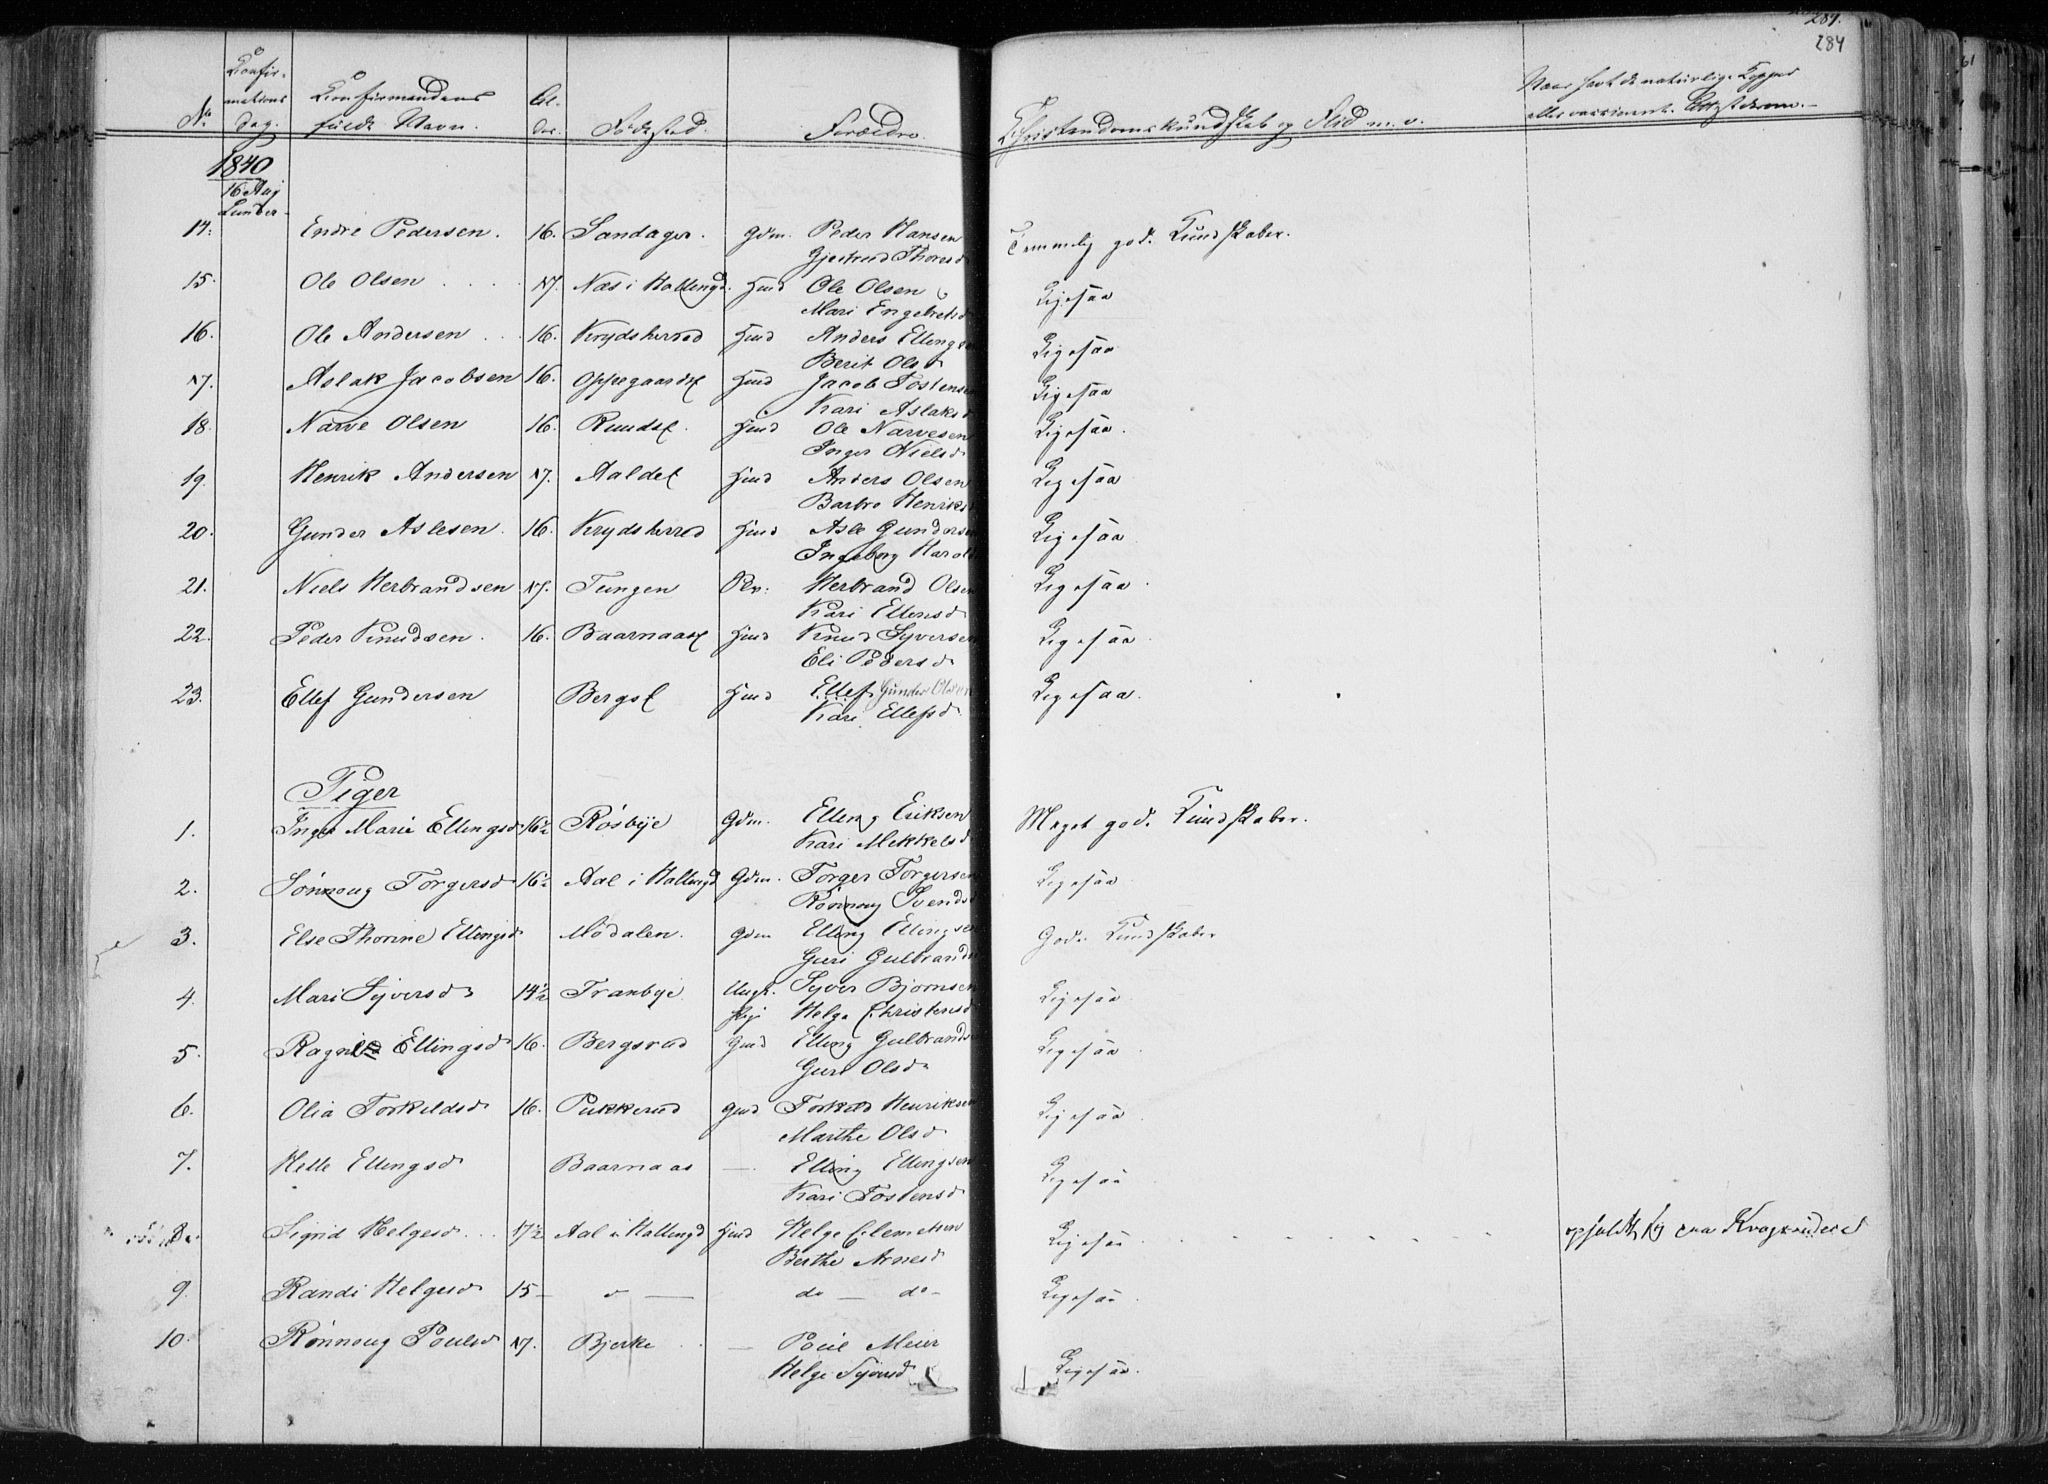 284.
284
No
Confir-
mations
Dag.
Confirmandens
fulde Navn.
Al-
der.
Fødested.
Forældre.
Christendomskundskab og Flid m. v.
Naar havt de naturlige Kopper
eller vaccineret.
1840
16 Aug
14. Endre Pedersen. 16. Sandager. Gdm. Peder Hansen Temmelig gode Kundskaber.
Gjertrud Thoresd
15. Ole Olsen 17. Næs i Hallingd. Huusd Ole Olsen Ligesaa
Mari Engebretsd
16. Ole Andersen 16. Krydsherred Huusd Anders Ellingsen Ligesaa
Berit Olsd
17. Aslak Jacobsen 16. Oppegaards Huusd Jacob Tostensen Ligesaa
Kari Aslaksd
18. Narve Olsen 16. Ruuds Huusd Ole Narvesen Ligesaa.
Inger Nielsd
19. Henrik Andersen 17. Aalde Huusd Anders Olsen Ligesaa
Barbro Henriks
20. Gunder Aslesen. 16. Krydsherred Huusd Asle Gundersen Ligesaa
Ingeborg Harol
21. Niels Herbrandsen 17. Tungen Herbrand Olsen Ligesaa
Kari Ellensd
22. Peder Knudsen. 16. Baarnaas Huusd Knud Syversen Ligesaa
Eli Pedersd
23. Ellef Gundersen Bergs Huusd Ellef Gunder Olsen Ligesaa.
Kari Ellefsd.
Piger
1. Inger Marie Ellingsd 16½ Rosbye Gdm. Elling Eriksen Meget gode Kundskaber.
Kari Mekkelsd
2. Sønnoug Torgersd 16½ Aal i Hallingd Gdm. Torger Torgersen Ligesaa
Rønnoug Svendsd
3. Else Thorine Ellingsd Modalen. Gdm Elling Ellingsen Gode Kundskaber
Guri Gulbrands
4. Mari Syversd 14½ Tranbye Ungk. Syver Bjornsen Ligesaa
Pige Helge Christensd
5. Ragnild Ellingsd 16. Bergsrud Huusd Elling Gulbrands Ligesaa
Guri Olsd
6. Olia Torkildsd 16. Pukkerud Huusd Torkild Henriksen Ligesaa
Marthe Olsd
7. Helle Ellingsd Baarnaas — Elling Ellingsen Ligesaa
Kari Tostensd
8. Sigrid Helgesd 17½ Aal i Hallingd Huusd Helge Clemetsen Ligesaa
Berthe Arnesd
9. Randi Helgesd 15 — do — do — Ligesaa
10. Rønnoug Poulsd 17. Bjerke — Poul Meier Ligesaa.
Helge Syversd